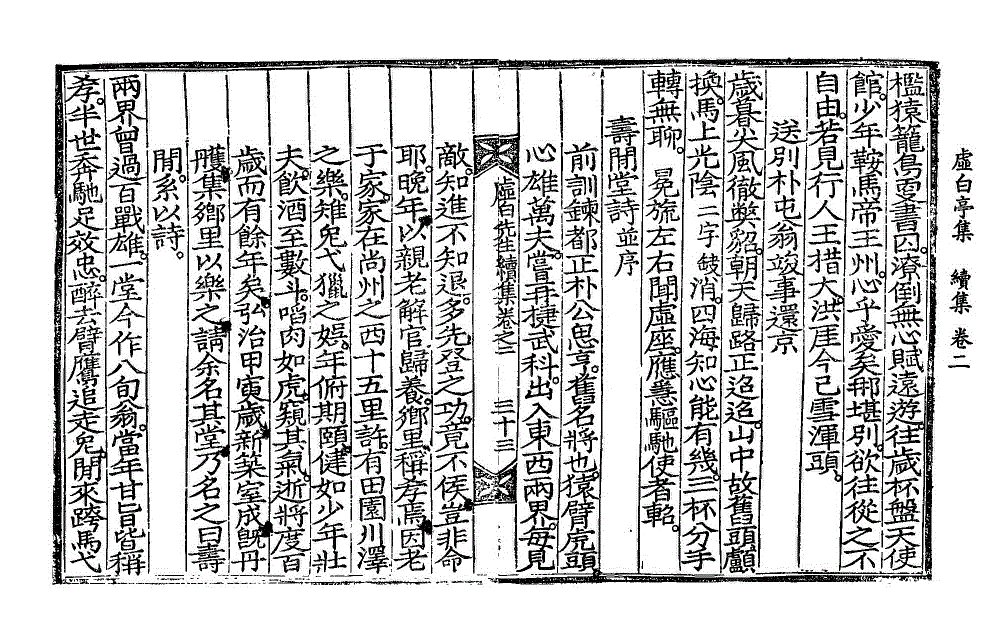 虛白亭集　續集　卷二
檻猿籠鳥耍書囚。潦倒無心賦遠遊。往歲杯盤天使
館。少年鞍馬帝王州。心乎愛矣那堪別。欲往從之不
自由。若見行人王措大。洪涯今已雪渾頭。
送別朴屯翁竣事還京
歲暮尖風徹弊貂。朝天歸路正迢迢。山中故舊頭顱
換。馬上光陰二字缺消。四海知心能有幾。三杯分手
轉無聊。冕旒左右聞虛座。應慧驅馳使者軺。
壽閒堂詩並序
前訓鍊都正朴公思亨。舊名將也。猿臂虎頭。
心雄萬夫。嘗再捷武科。出入東西兩界。每見
虛白先生續集卷之二　三十三
敵。知進不知退。多先登之功。竟不侯。豈非命
耶。晚年以親老解官歸養。鄉里稱孝焉。因老
于家。家在尚州之西十五里許。有田園川澤
之樂。雉兔弋獵之娛。年俯期頤。健如少年壯
夫。飮酒至數斗。啗肉如虎。窺其氣。逝將度百
歲而有餘年矣。弘治甲寅歲。新築室成。旣丹
雘。集鄉里以樂之。請余名其堂。乃名之曰壽
閒。系以詩。
兩界曾過百戰雄。一堂今作八旬翁。當年甘旨皆稱
孝。半世奔馳足效忠。醉去臂鷹追走兔。閒來跨馬弋